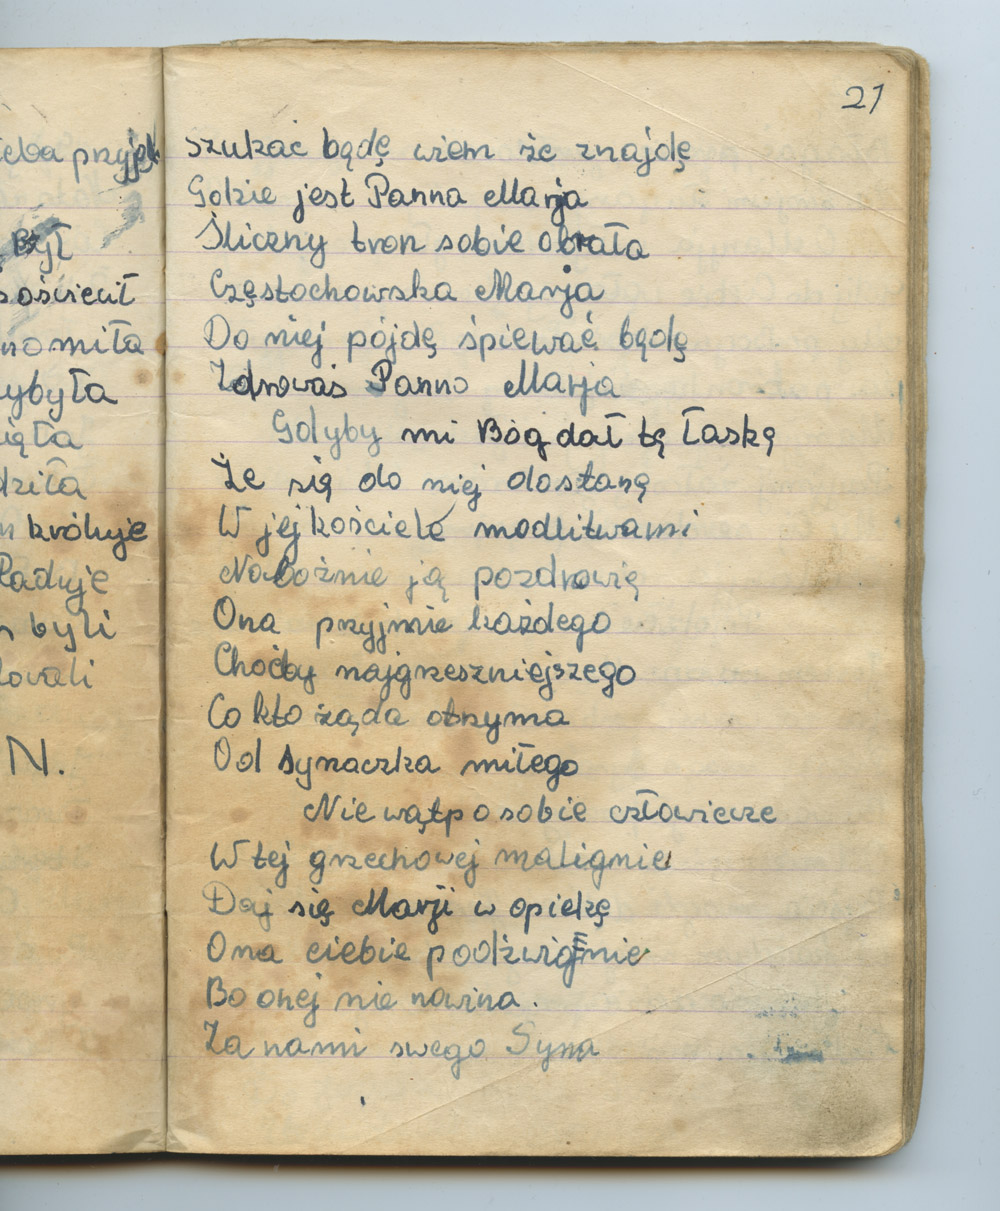 21
ieba przyjęł
Był
poświecił
no miła
zybyła
ięła
dziła
m króluje
Raduje
n byli
lowali
N.
szukać będę wiem że znajdę
Gdzie jest Panna Marja
Śliczny tron sobie obrała
Częstochowska Marja
Do niej pójdę śpiewać będę
Zdrowaś Panno Marja
Gdyby mi Bóg dał tę łaskę
Że się do niej dostanę
W jej kościele modlitwami
Nabożnie ją pozdrowię
Ona przyjmie każdego
Choćby najgrzeszniejszego
Co kto żąda otrzyma
Od synaczka miłego
Nie wątp o sobie człowiecze
W tej grzechowej malignie
Daj się Marji w opiekę
Ona ciebie podźwignie
Bo onej nie nowina.
Za nami swego Syna